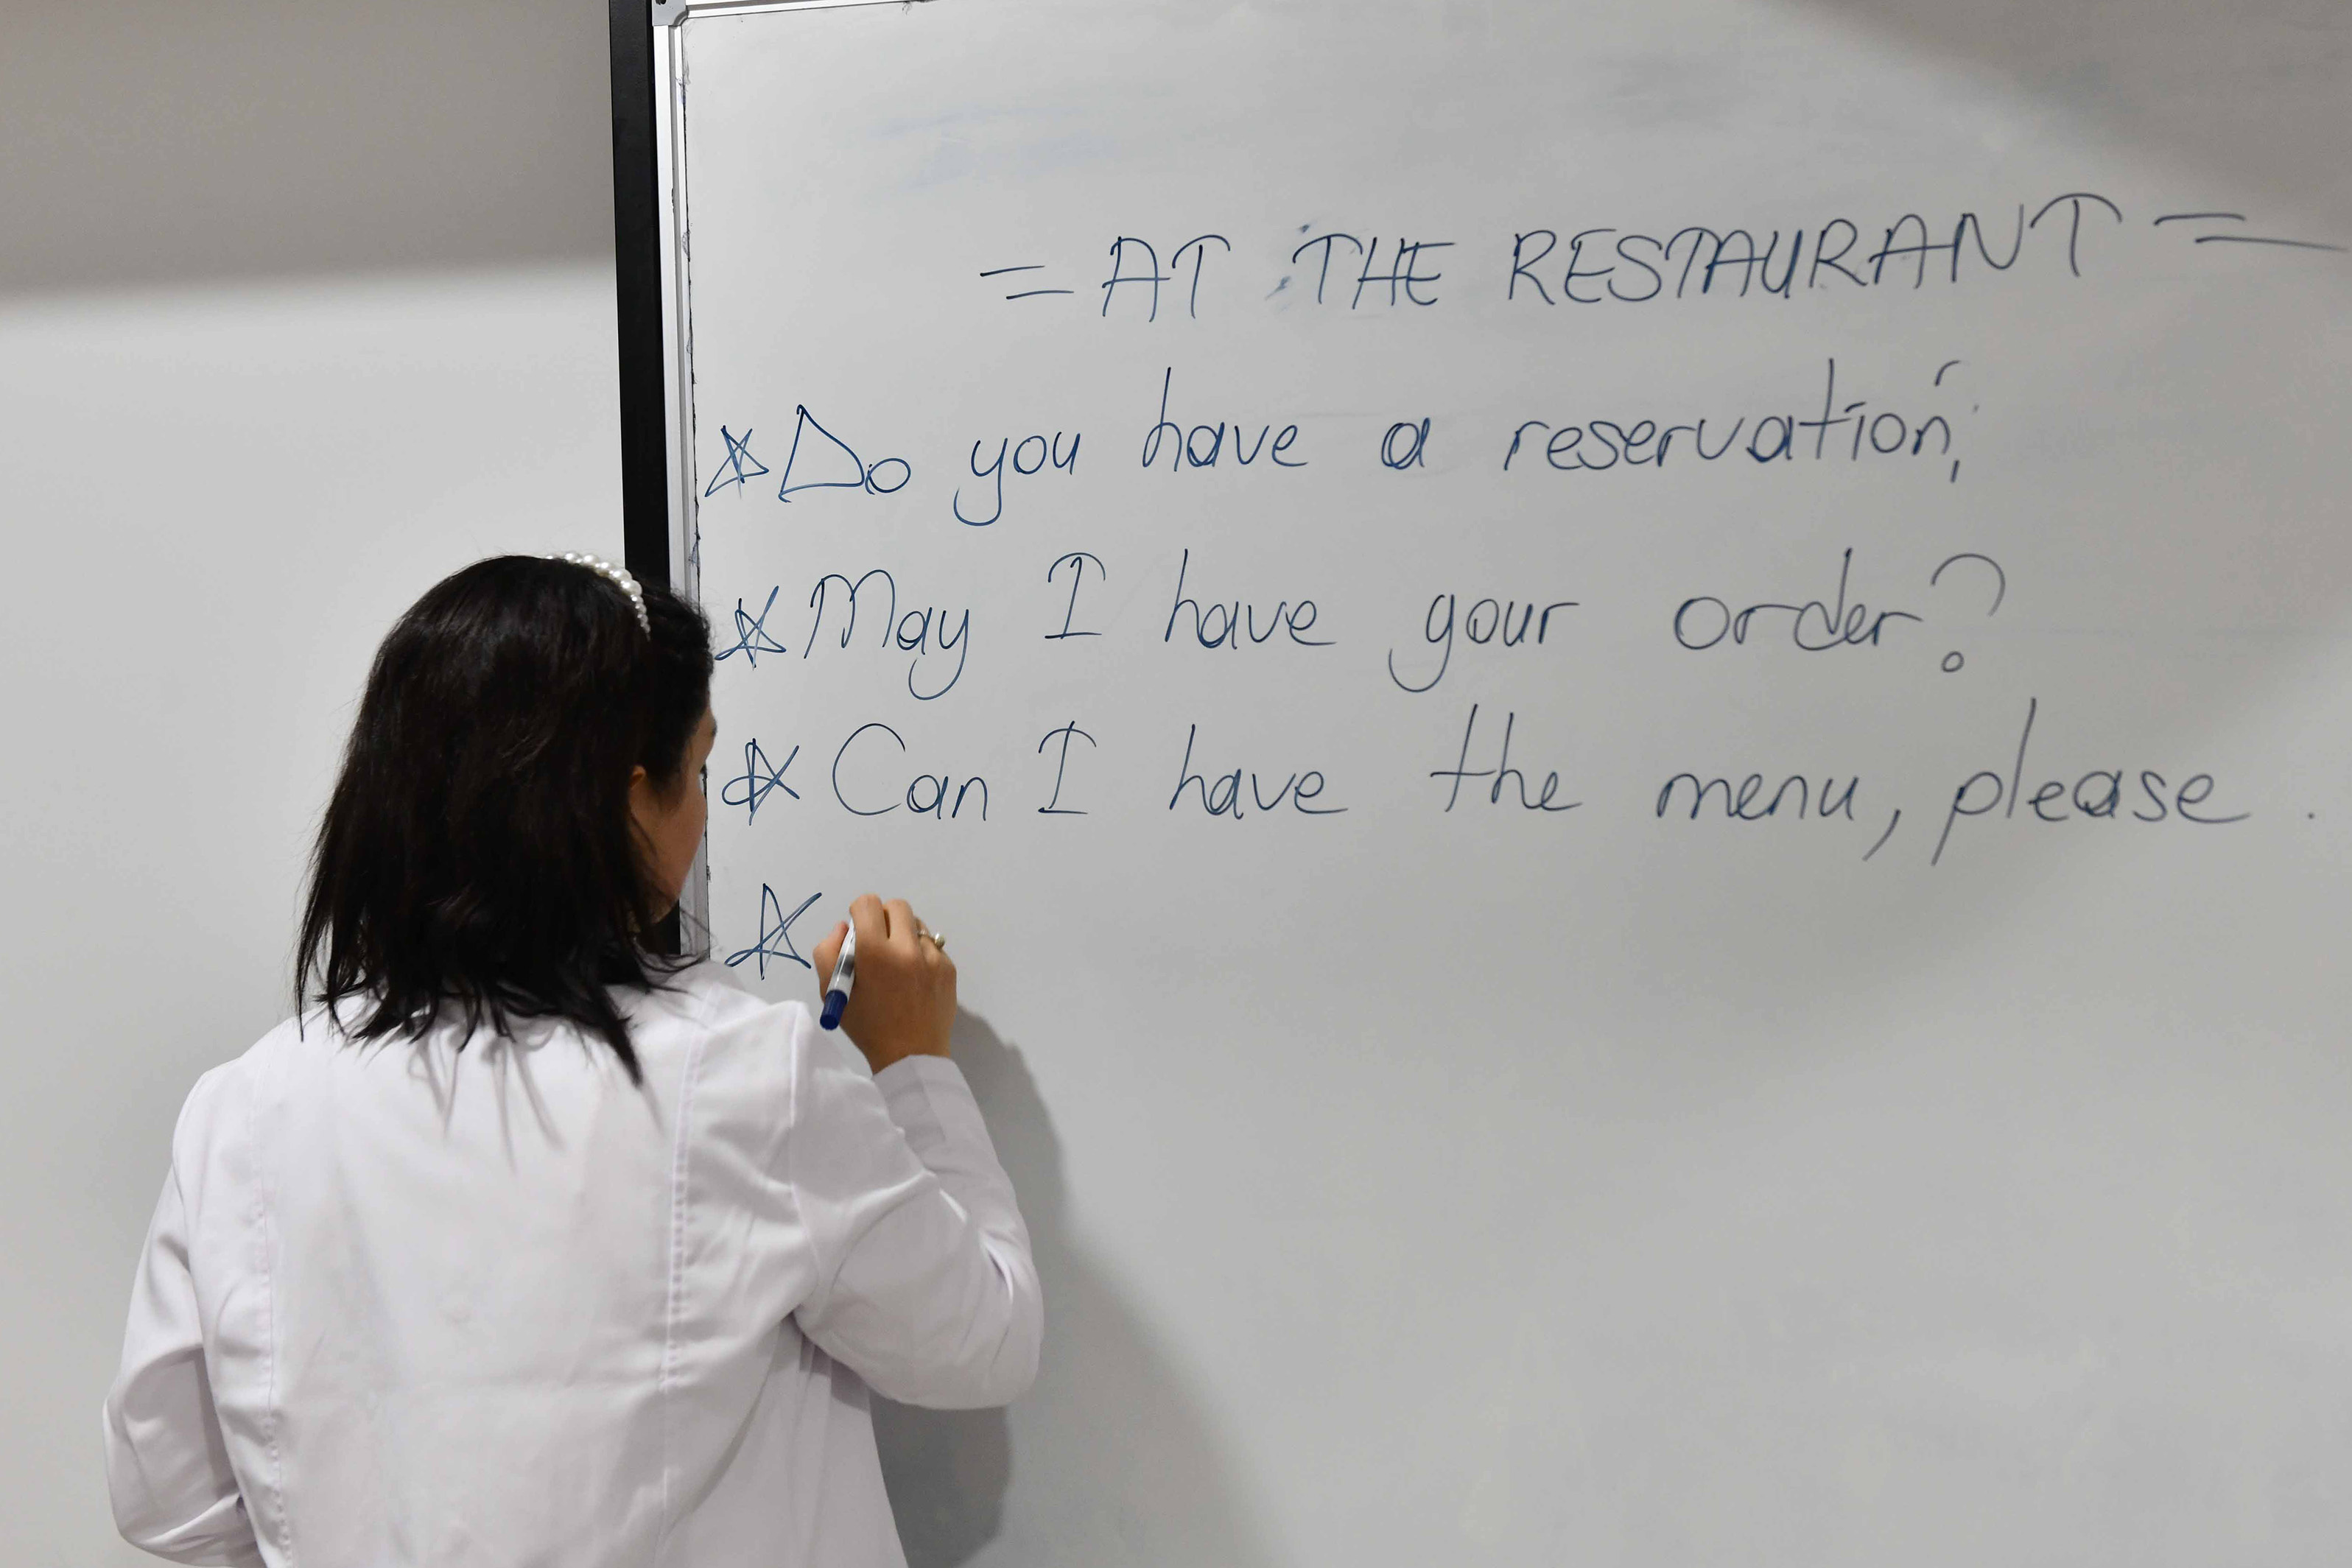 = AT THE RESTAURANT =
☆ Do you have a reservation;
☆ May I have your order?
☆ Can I have the menu, please.
☆